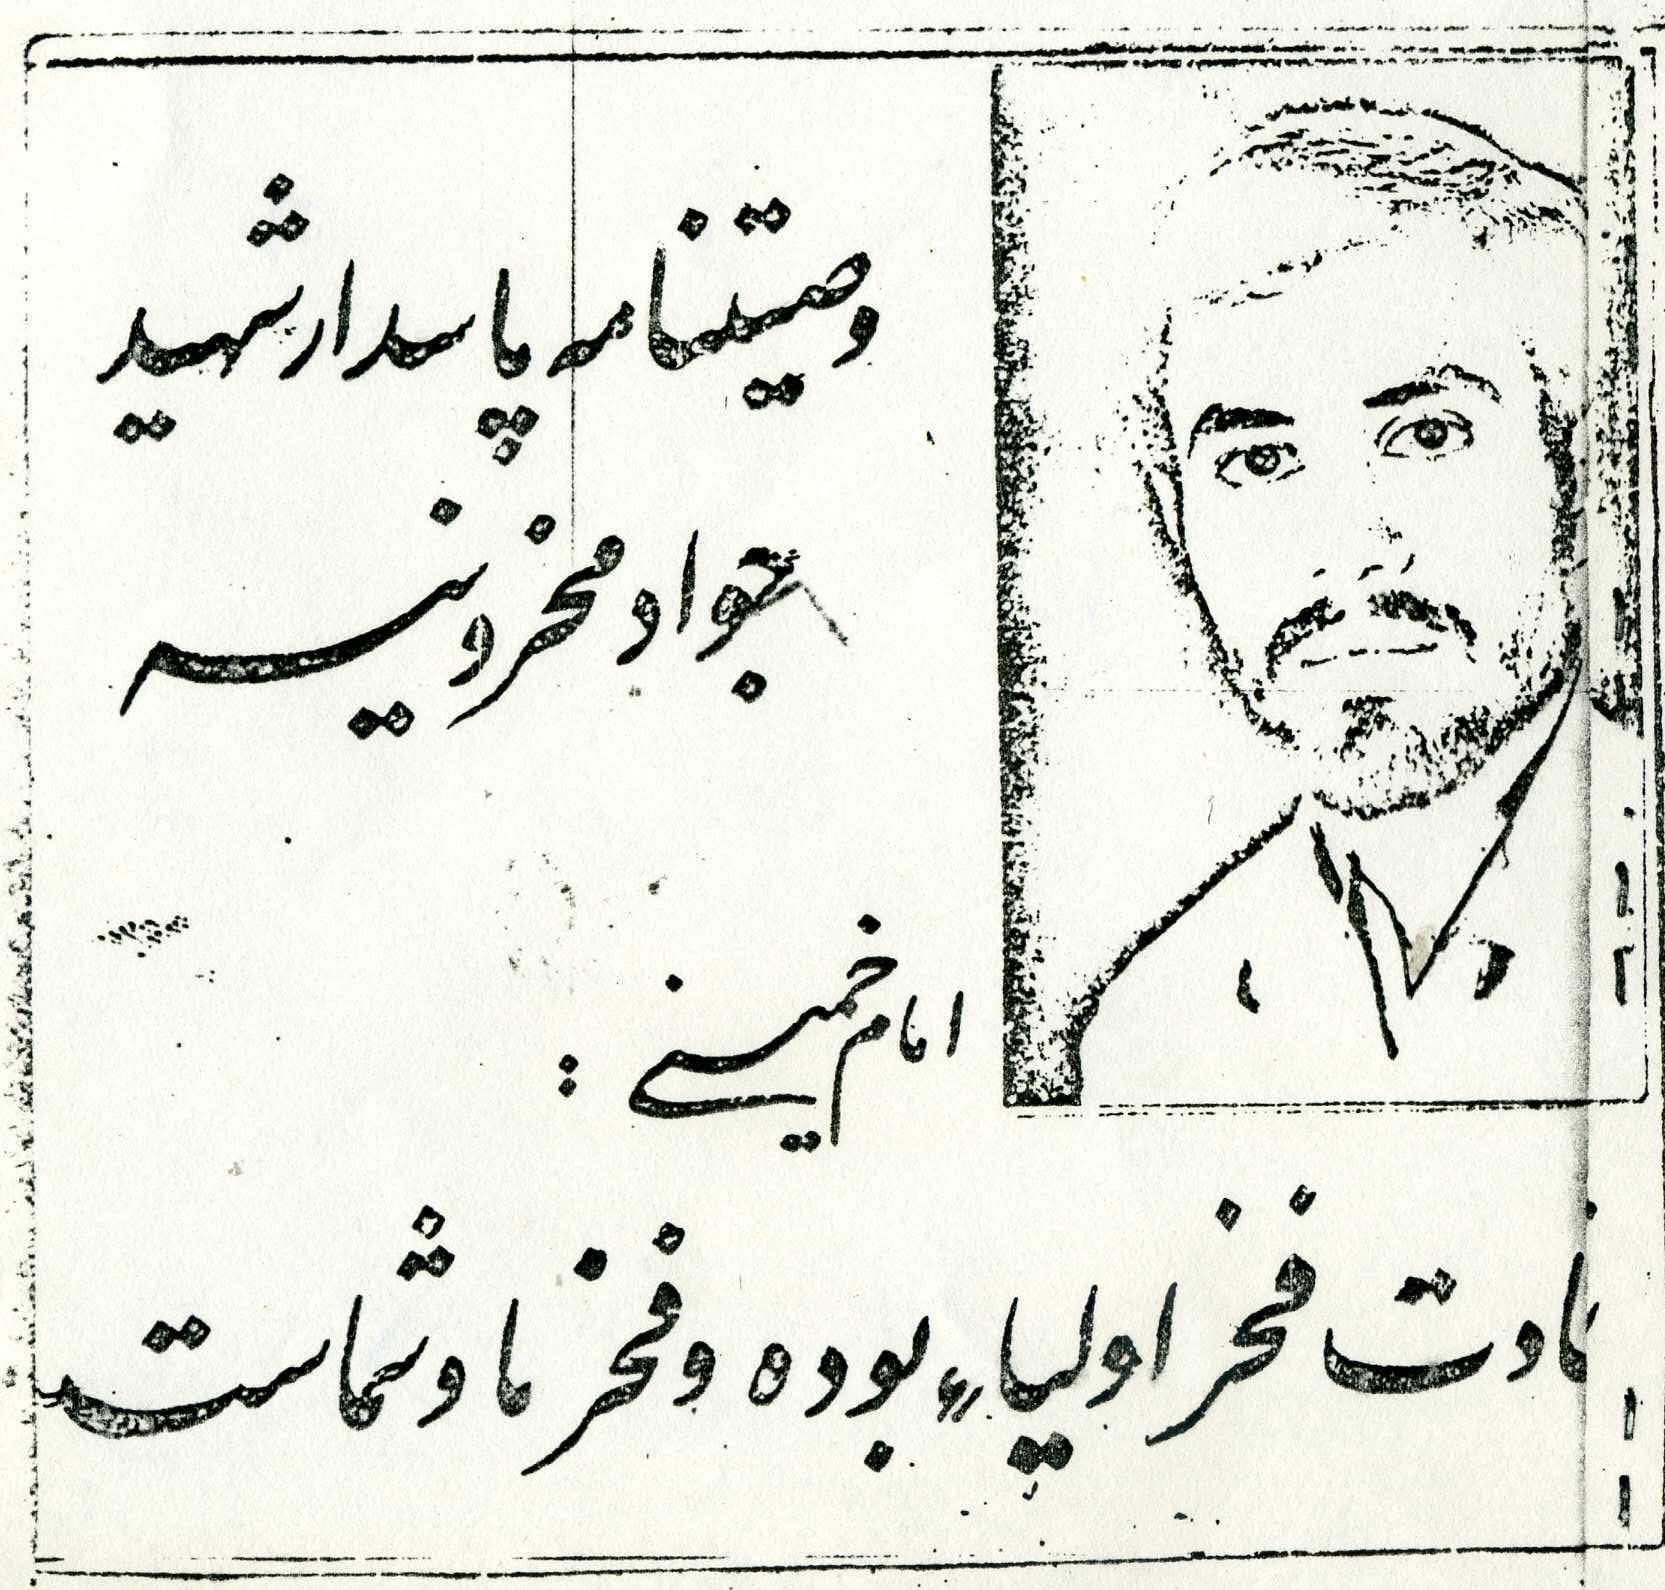 وصیتنامه پاسدار شهید
جواد
امام خمینی :
فخر اولیاء بوده و فخر ما و شماست